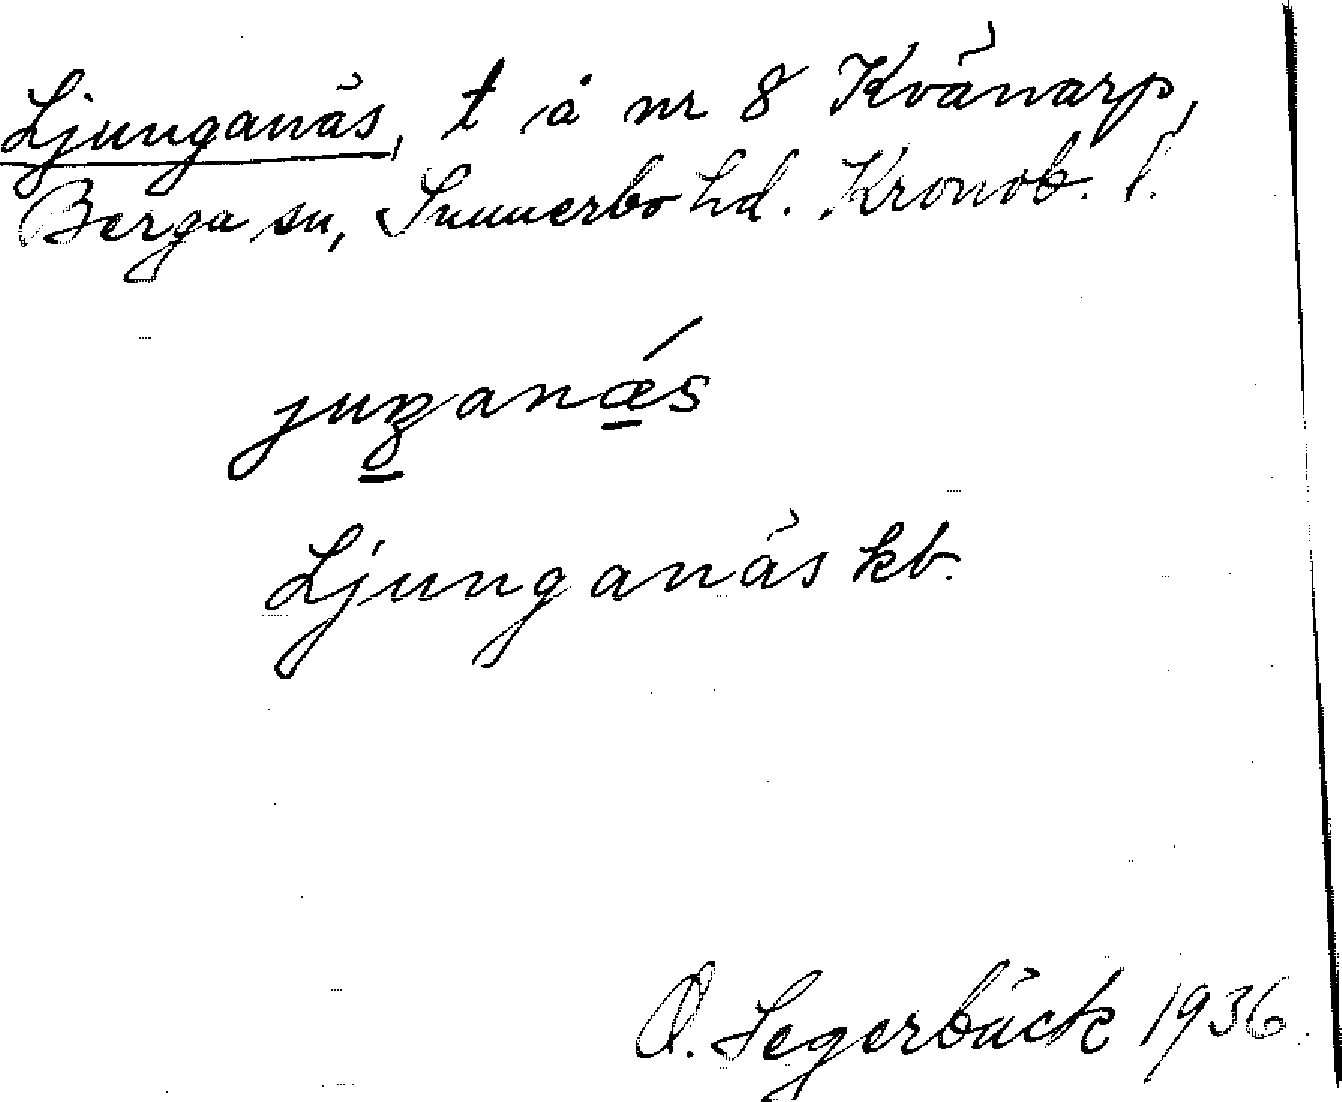 Ljunganäs, t å nr 8 Kvänarp,
Berga sn, Sunnerbo hd. Kronob. l.
juŋanǽ̱s
Ljunganäs kb.
O. Segerbäck 1936.